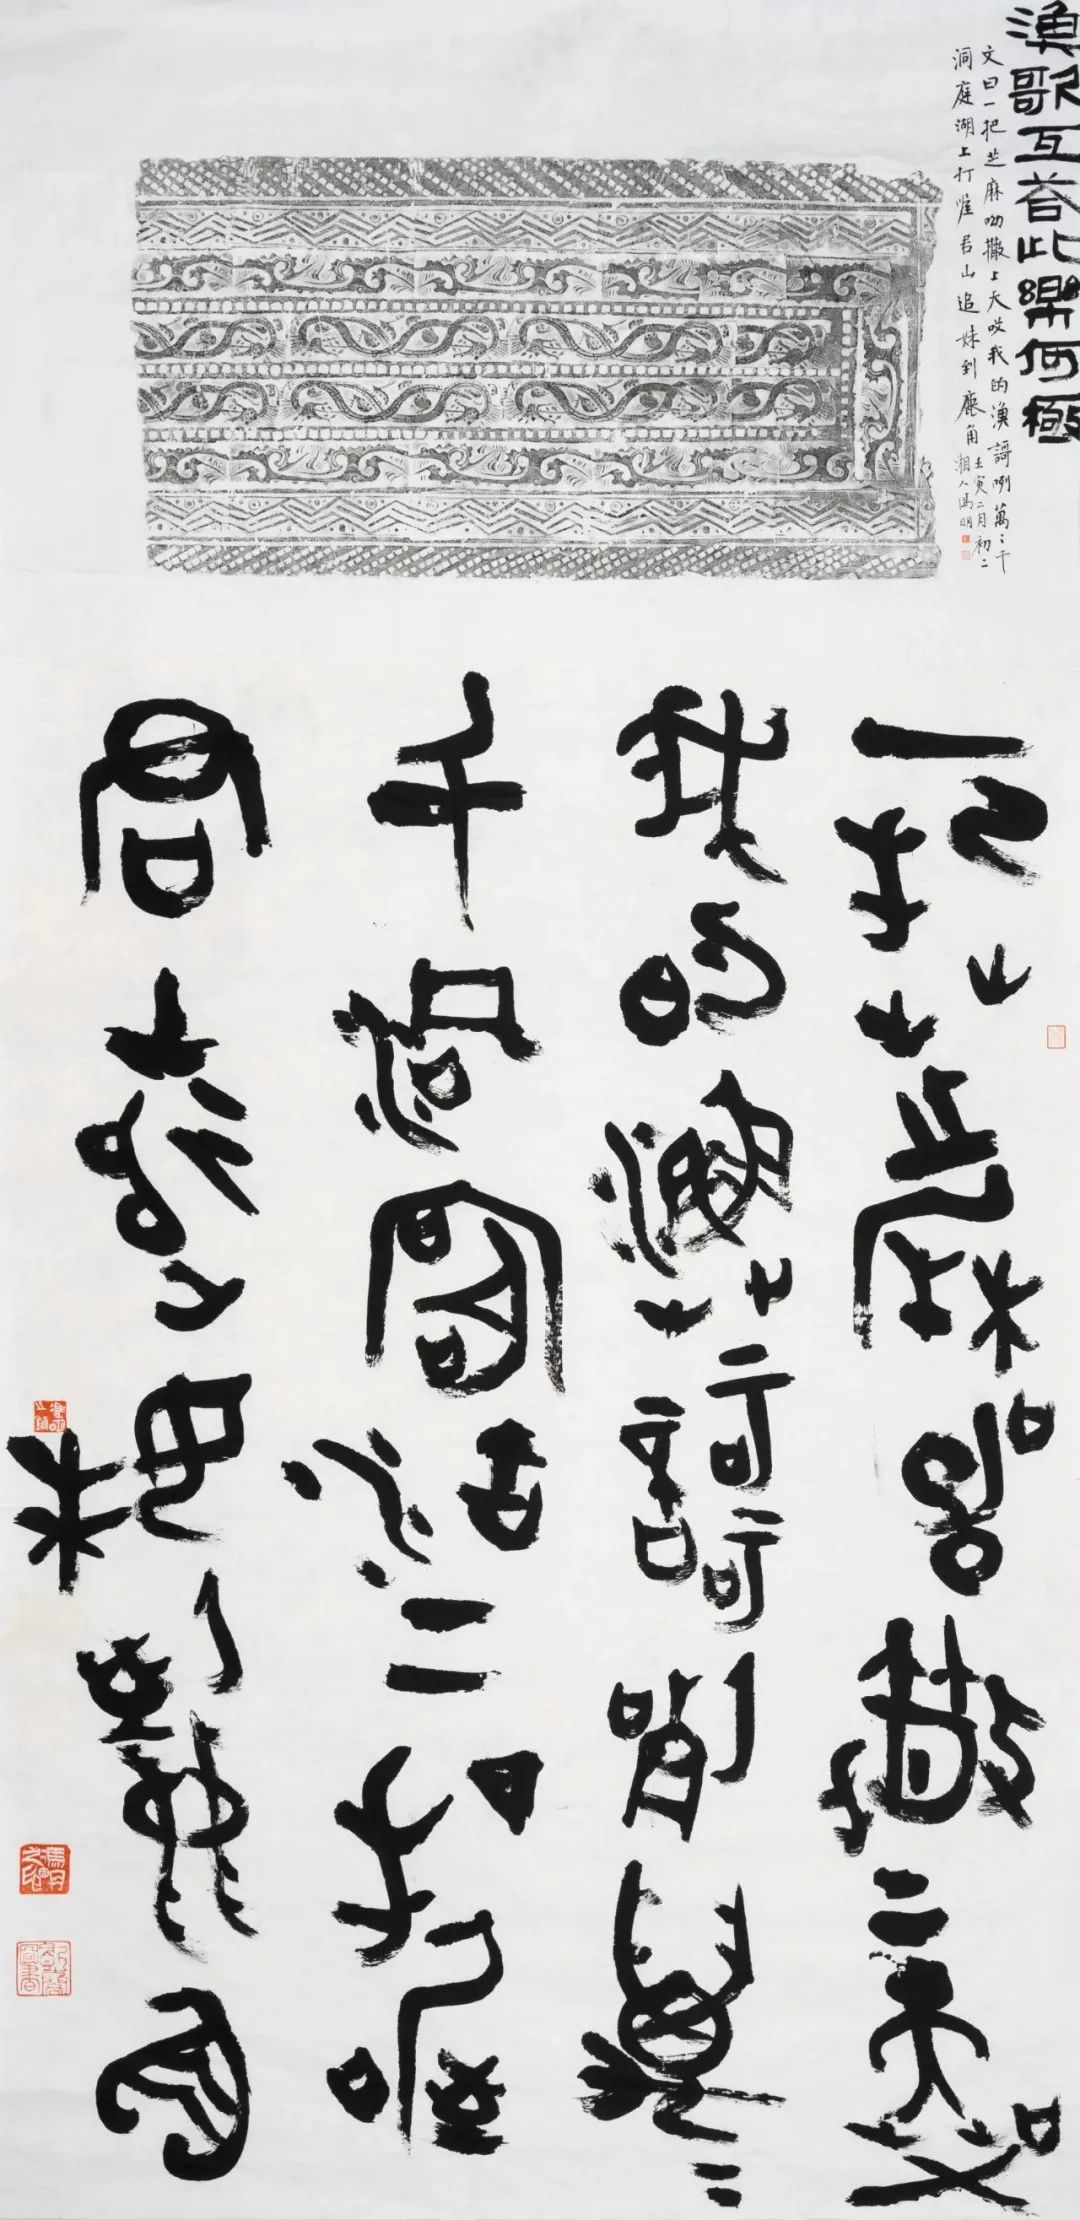 漁歌互荅此樂何極
文曰一把芝麻呦撒上天哎我的漁謌咧萬〻千
洞庭湖上打喔君山追妹到鹿角
壬寅二月初二
湘人馮明
一把芝麻呦撒上天哎
我的漁謌咧萬〻
千洞庭湖上打喔
君山追妹到鹿角
馮明之印